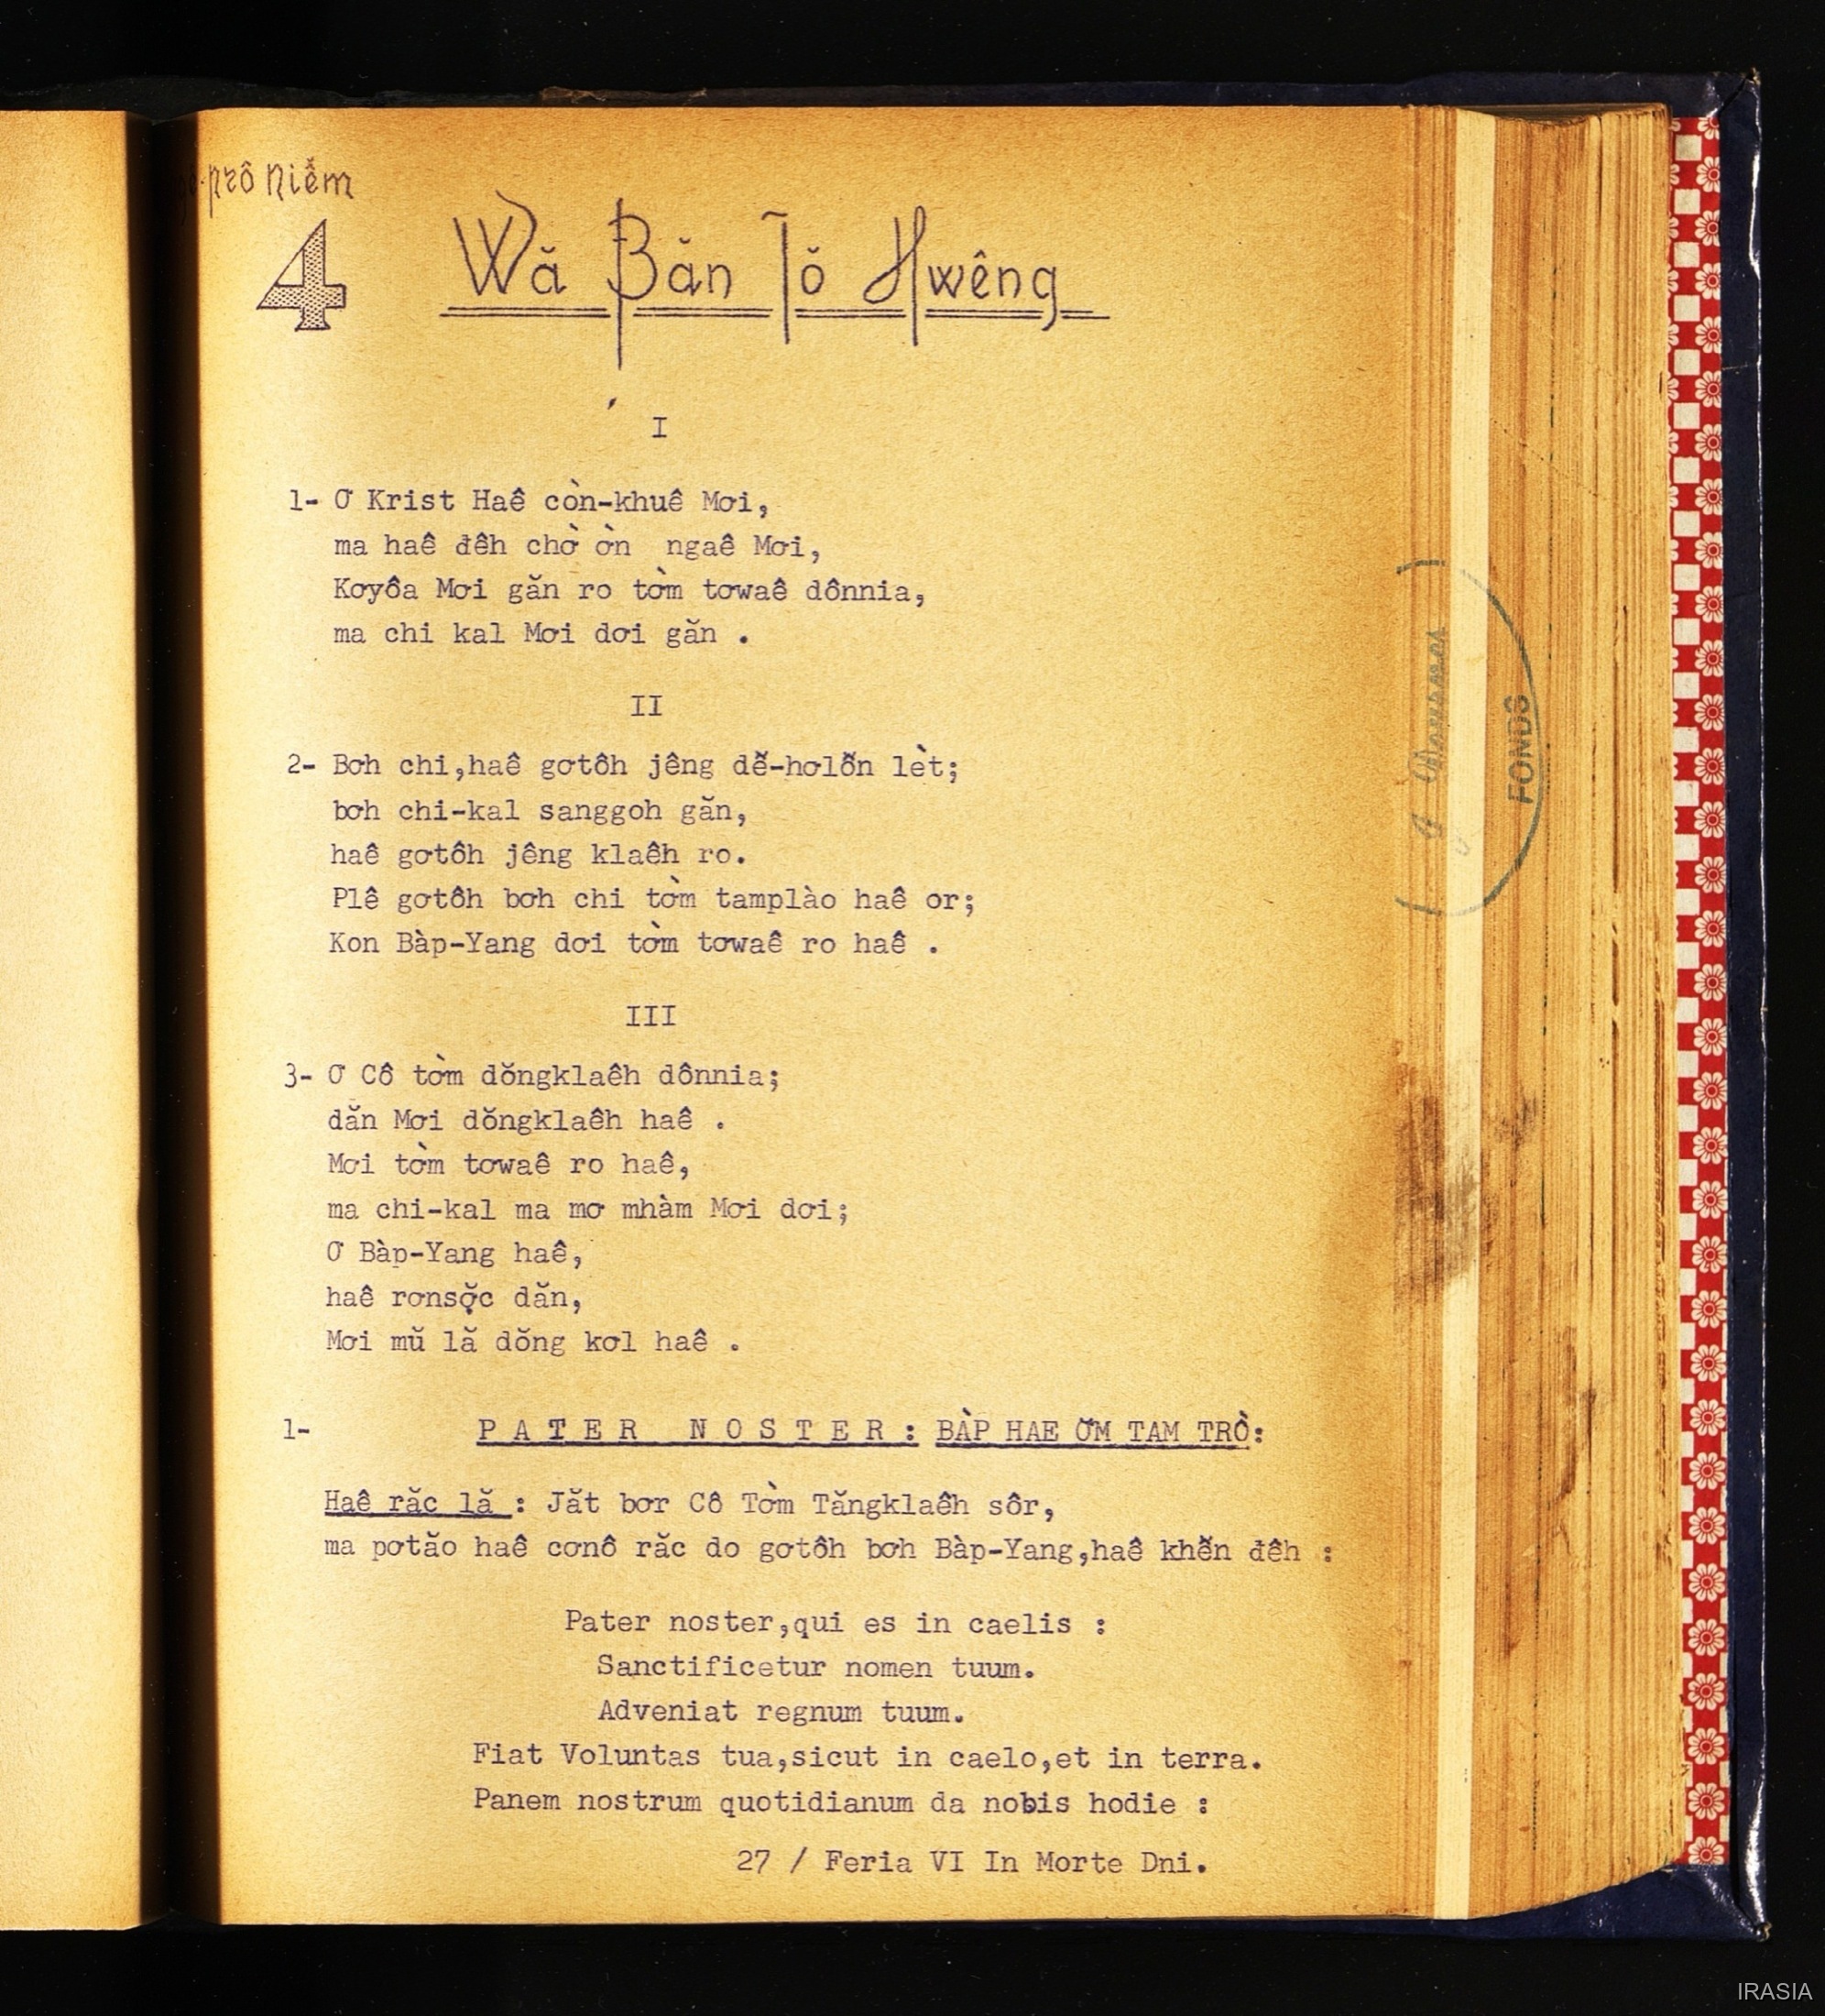 prô Niễm
4 Wă Băn Tŏ Hwêng
I
1- Ơ Krist Haê còn-khuê Mơi,
ma haê đêh chờ ờn ngaê Mơi,
Kơyôa Mơi găn ro tờm tơwaê dônnia,
ma chi kal Mơi dơi găn .
II
2- Bơh chi,haê gơtôh jêng dê̆-hơlô̆n lèt;
bơh chi-kal sanggoh găn,
haê gơtôh jêng klaêh ro.
Plê gơtôh bơh chi tờm tamplào haê or;
Kon Bàp-Yang dơi tờm tơwaê ro haê .
III
3- Ơ Cô tờm dŏngklaêh dônnia;
dăn Mơi dŏngklaêh haê .
Mơi tờm tơwaê ro haê,
ma chi-kal ma mơ mhàm Mơi dơi;
Ơ Bàp-Yang haê,
haê rơnsợ̆c dăn,
Mơi mŭ lă dŏng kơl haê .
1- PATER NOSTER: BÀP HAE ƠM TAM TRÒ:
Haê răc lă : Jăt bơr Cô Tờm Tăngklaêh sôr,
ma pơtăo haê cơnô răc do gơtôh bơh Bàp-Yang,haê khê̆n đêh :
Pater noster,qui es in caelis :
Sanctificetur nomen tuum.
Adveniat regnum tuum.
Fiat Voluntas tua,sicut in caelo,et in terra.
Panem nostrum quotidianum da nobis hodie :
27 / Feria VI In Morte Dni.
FONDS
IRASIA